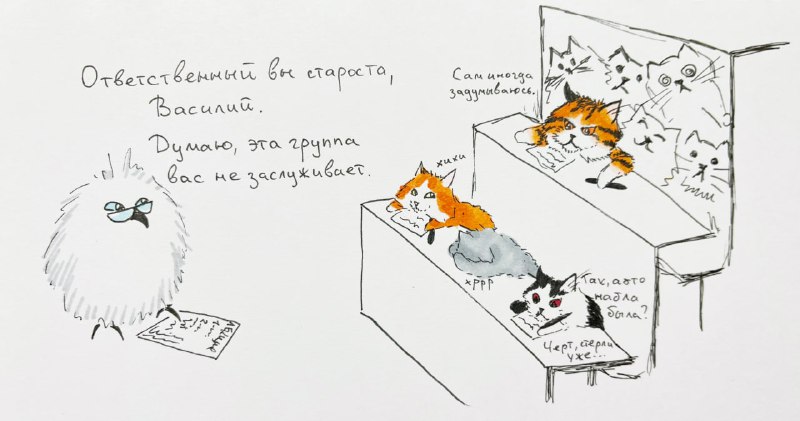 Ответственный вы староста,
Василий.
Думаю, эта группа
вас не заслуживает.
Сам иногда
задумываюсь.
хихи
хррр
Так, а это
набла
была?
Черт, стерли
уже...